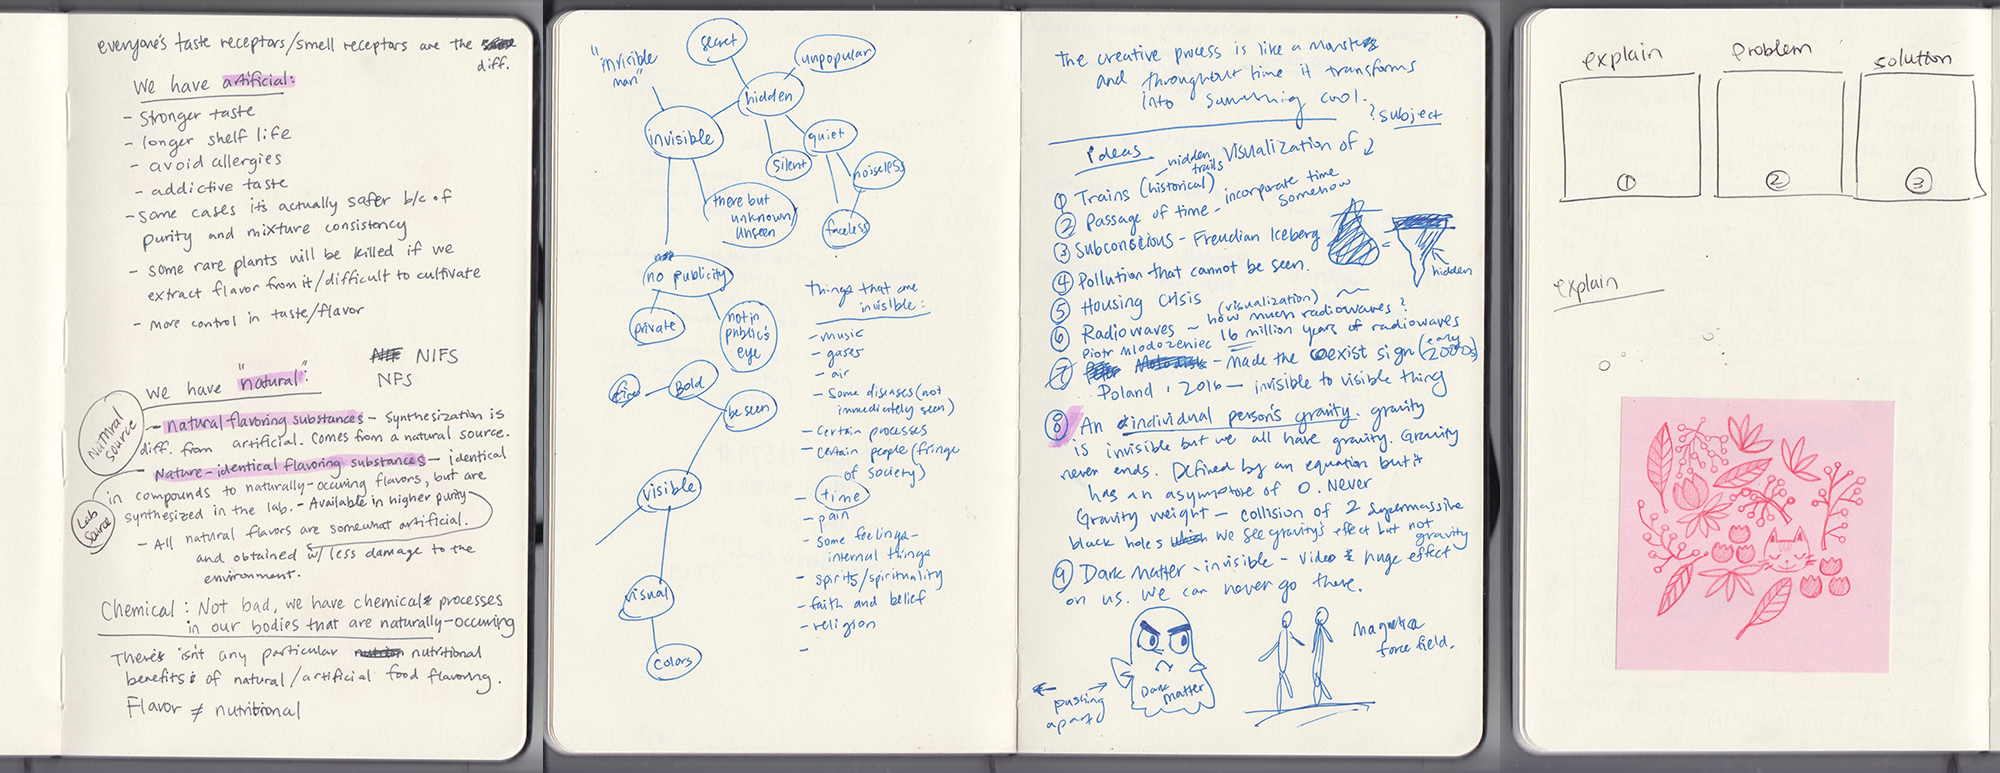 everyone's taste receptors/smell receptors are the
diff.
We have artificial:
- Stronger taste
- longer shelf life
- avoid allergies
- addictive taste
- some cases its actually safer b/c of
purity and mixture consistency
- some rare plants will be killed if we
extract flavor from it/difficult to cultivate
- More control in taste/flavor
NIFS
NFS
We have "natural":
Natural source
- natural flavoring substances - synthesization is
diff. from artificial. Comes from a natural source.
- Nature-identical flavoring substances - identical
in compounds to naturally-occuring flavors, but are
synthesized in the lab. - Available in higher purity
Lab source
- All natural flavors are somewhat artificial.
and obtained w/ less damage to the
environment.
Chemical: Not bad, we have chemical processes
in our bodies that are naturally-occuring
There's isn't any particular nutritional
benefits of natural/artificial food flavoring.
Flavor ≠ nutritional
"invisible
man"
secret
unpopular
hidden
invisible
quiet
silent
noiseless
there but
unknown/
unseen
faceless
no publicity
private
not in
public's
eye
Bold
be seen
visible
visual
colors
Things that are
invisible:
- music
- gases
- air
- Some diseases (not
immediately seen)
- Certain processes
- Certain people (fringe
of society)
- time
- pain
- some feelings-
internal things
- spirits/spirituality
- faith and belief
- religion
-
The creative process is like a monster
and throughout time it transforms
into something cool.
? Subject
Ideas
hidden
trails
Visualization of
① Trains (historical)
② Passage of time - incorporate time
somehow
③ Subconscious - Freudian Iceberg
hidden
④ Pollution that cannot be seen.
⑤ Housing Crisis
(visualization)
⑥ Radiowaves ~ how much radiowaves?
16 million years of radiowaves
Piotr Mlodozeniec
⑦ - Made the coexist sign (early
2000s)
Poland, 2016 - invisible to visible thing
⑧ An individual person's gravity. gravity
is invisible but we all have gravity. Gravity
never ends. Defined by an equation but it
has an asymptote of 0. Never
Gravity weight - collision of 2 supermassive
black holes we see gravity's effect but not
gravity
⑨ Dark Matter - invisible - video & huge effect
on us. We can never go there.
Dark Matter
pushing
apart
Magnetic
force field.
explain
problem
solution
①
②
③
explain